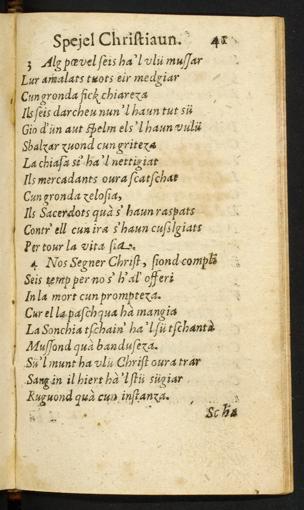 Spejel Christiaun. 41
3 Alg pœvel seis ha'l vlü mussar
Lur amalats tuots eir medgiar
Cun gronda fick chiareza
Ils seis darcheu nun'l haun tut sü
Gio d'ün aut spelm els'l haun vulü
Sbalzar zuond cun griteza
La chiasa si ha'l nettigiat
Ils mercadants oura scatschat
Cun gronda zelosia,
Ils Sacerdots quà s'haun raspats
Contr' ell cun ira s'haun cusslgiats
Per tour la vita sia.
4. Nos Segner Christ, siond compli
Seis temp per no s'h'al' offeri
In la mort cun prompteza.
Cur el la paschqua hà mangia
La Sonchia tschain' ha'lsü tschantà
Mussond quà banduseza.
Sü'l munt ha vlü Christ oura trar
Sangin il hiert hà'lstü sügiar
Ruguond quà cun instanza.
Scha